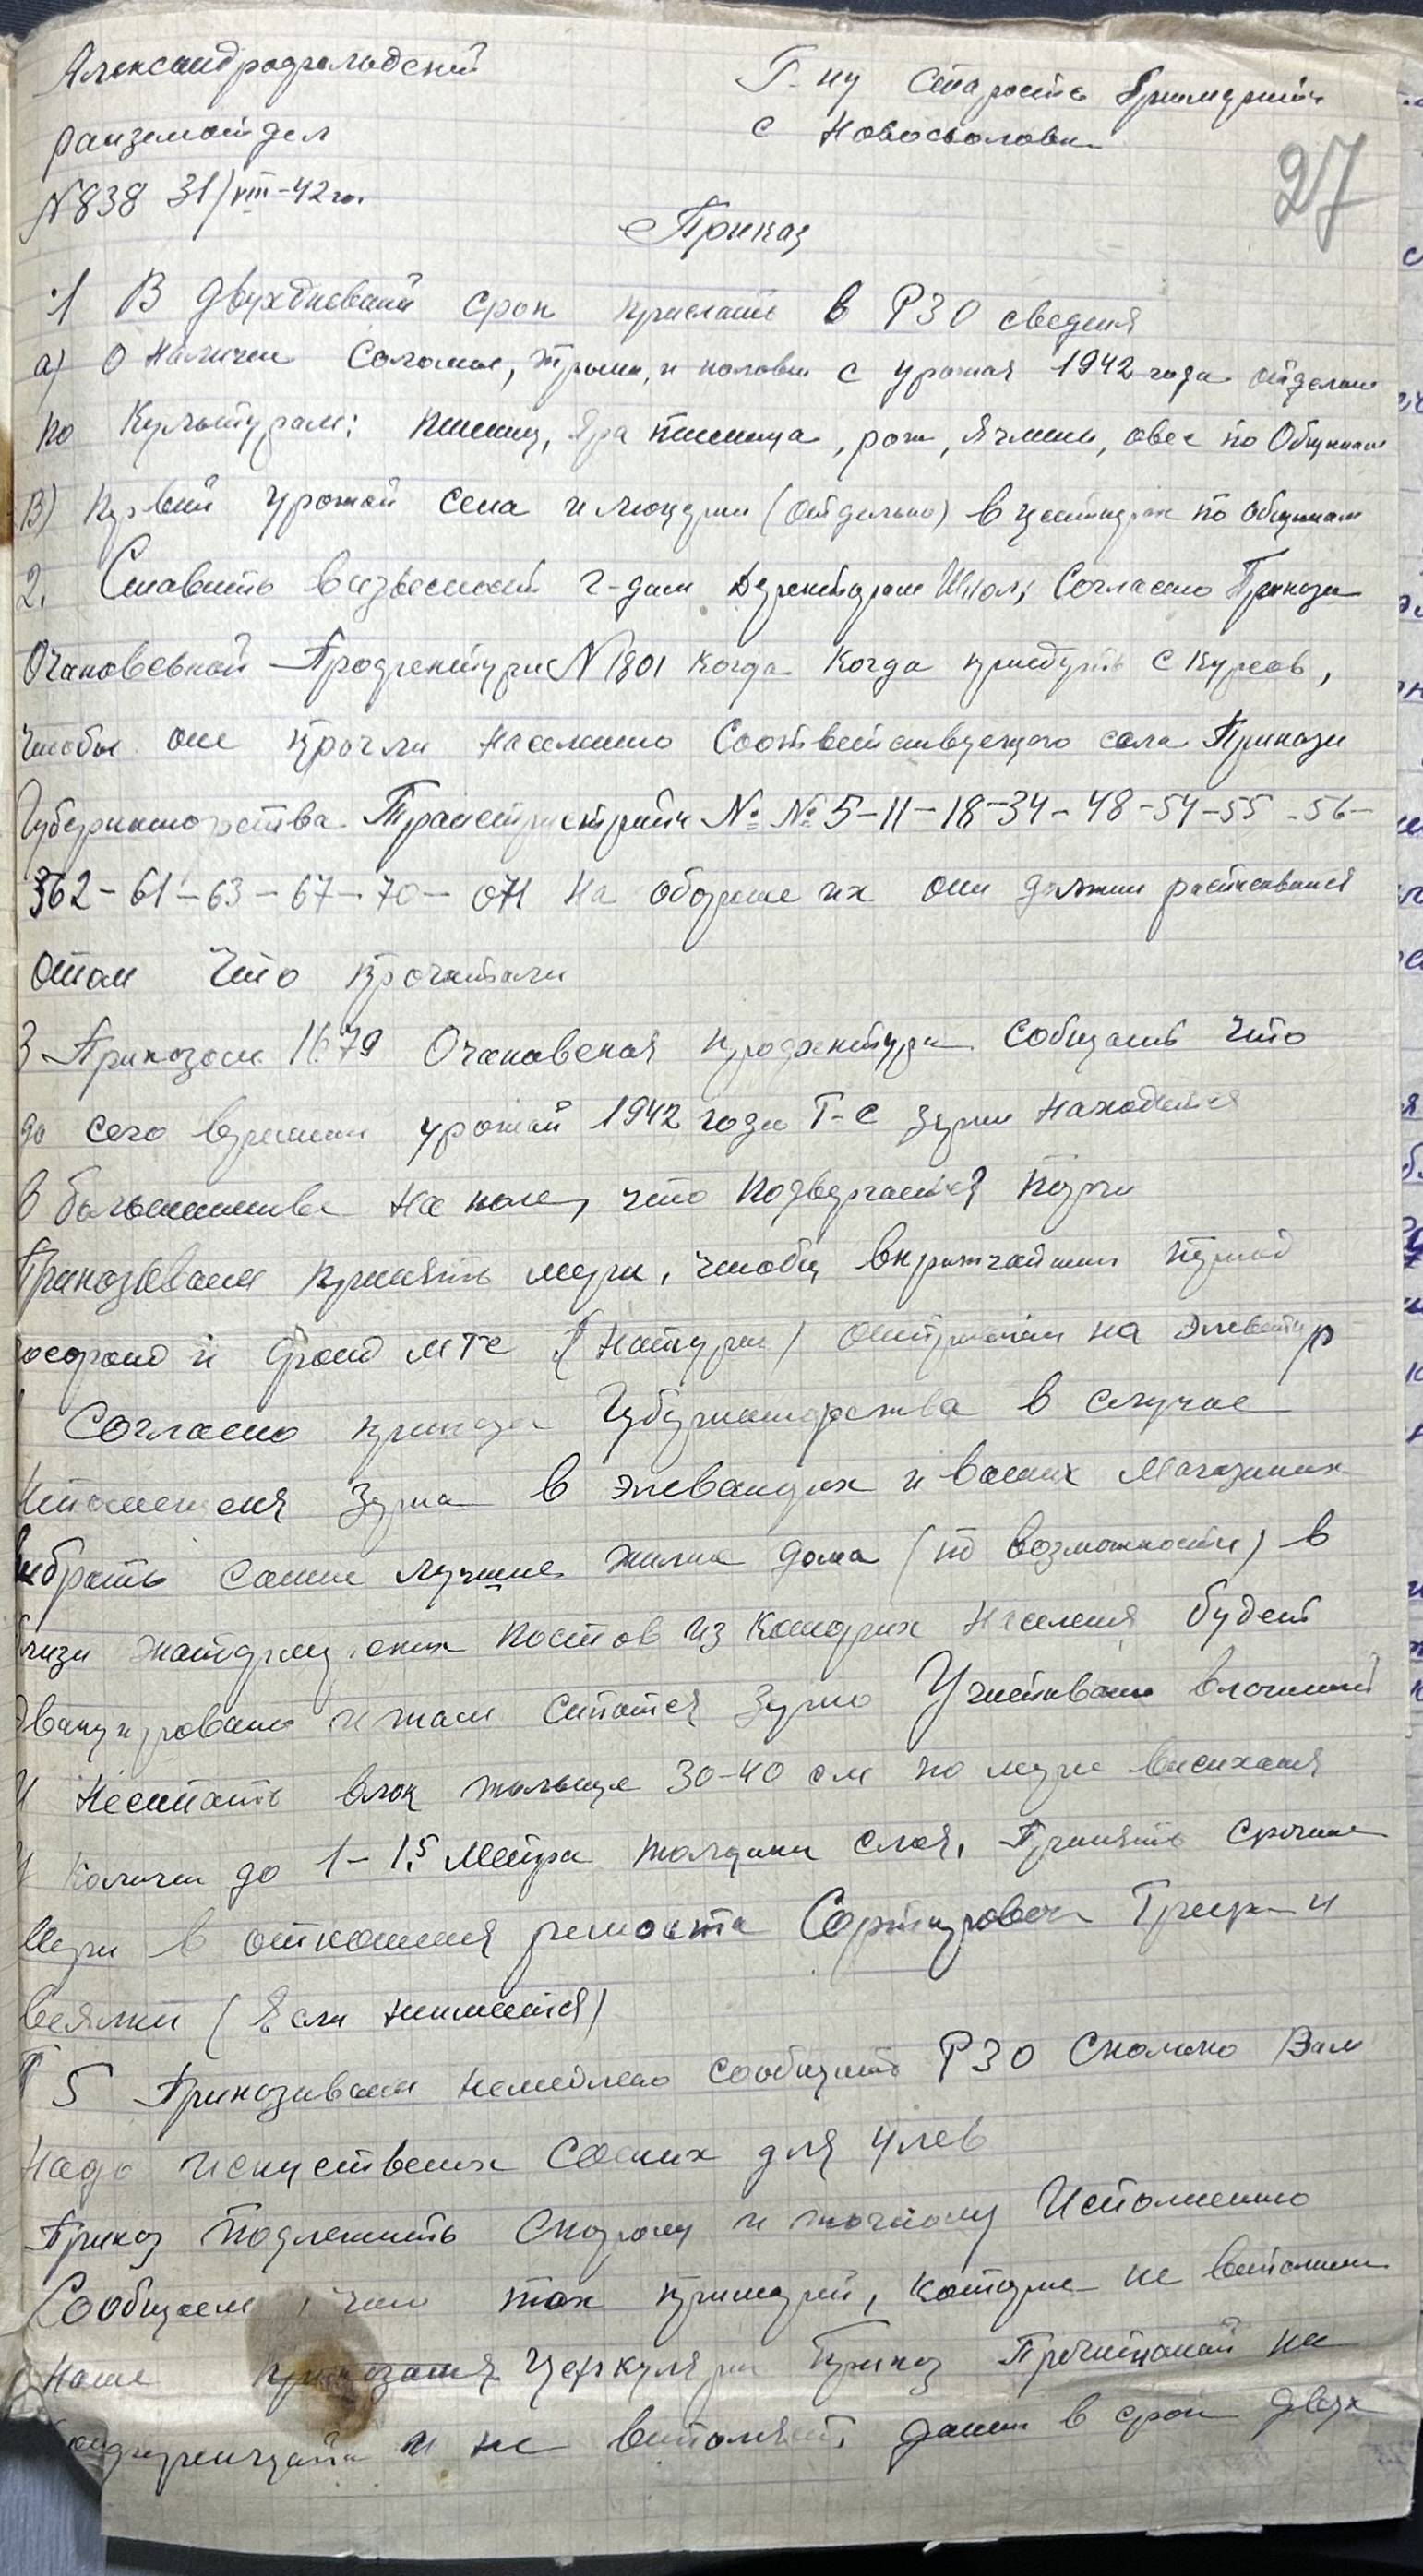 Александрофельдский
райземотдел
№838 31/VIII-42го.
Г-ну Старосте Примэрии
с Новоселовки
27
Приказ
1 В двухдневный срок прислать в РЗО сведеня
а) О Наличии Соломы, и половы с урожая 1942 года отдельно
по Культурам: пшениц, Яра пшеница, рож, Ячмень, овес по Общинам
В) Первый урожай сена и люцерни (отдельно) в центнерах по общинам
2. Ставить визвесност г-дам Директорам Школ, Согласно Приказа
Очаковской Профектури №1801 когда Когда прибудть с Курсов,
чтобы они прочли Населению Соответствующого села Прикази
Губернаторства Транснистрии №№ 5-11-18-34-48-54-55-56-
362-61-63-67-70- На обороте их они должни расписаться
отом что прочитали
3 Приказом 1679 Очаковская профектура Собщаеть что
до сего времени урожай 1942 года Т-е Зерна Находится
в большинстве На поле, что подвергается порчи
Приказиваем принять мери, чтобы вкратчайший период
и фонд мтс (Натури) отправит на Элеватор
Согласно приказа Губернаторства в случае
Зерна в Элеваторах и ваших Магазинах
вибрать самие лучшие жилие дома (по возможности) в
близи жандармских постов из Которих Населеня будет
Эвакуировано и там Сипатся Зерно Учитивать
и Несипать толще 30-40 см по мере висиханя
до 1-1.5 Метра толщини слоя, Принять срочние
Мери в отношеня ремонта Сортировок Триера и
веялки (Если неимеется)
5 Приказиваем немедлено сообщить РЗО Сколько Вам
Надо искуствених Соених для улев
Приказ Подлежить Скорому и точному Исполнению
Сообщаем, что тех примэрий, Которие не виполнит
Наше приказаня Церкуляри Приказ не
и не виполнят, дание в срок двух